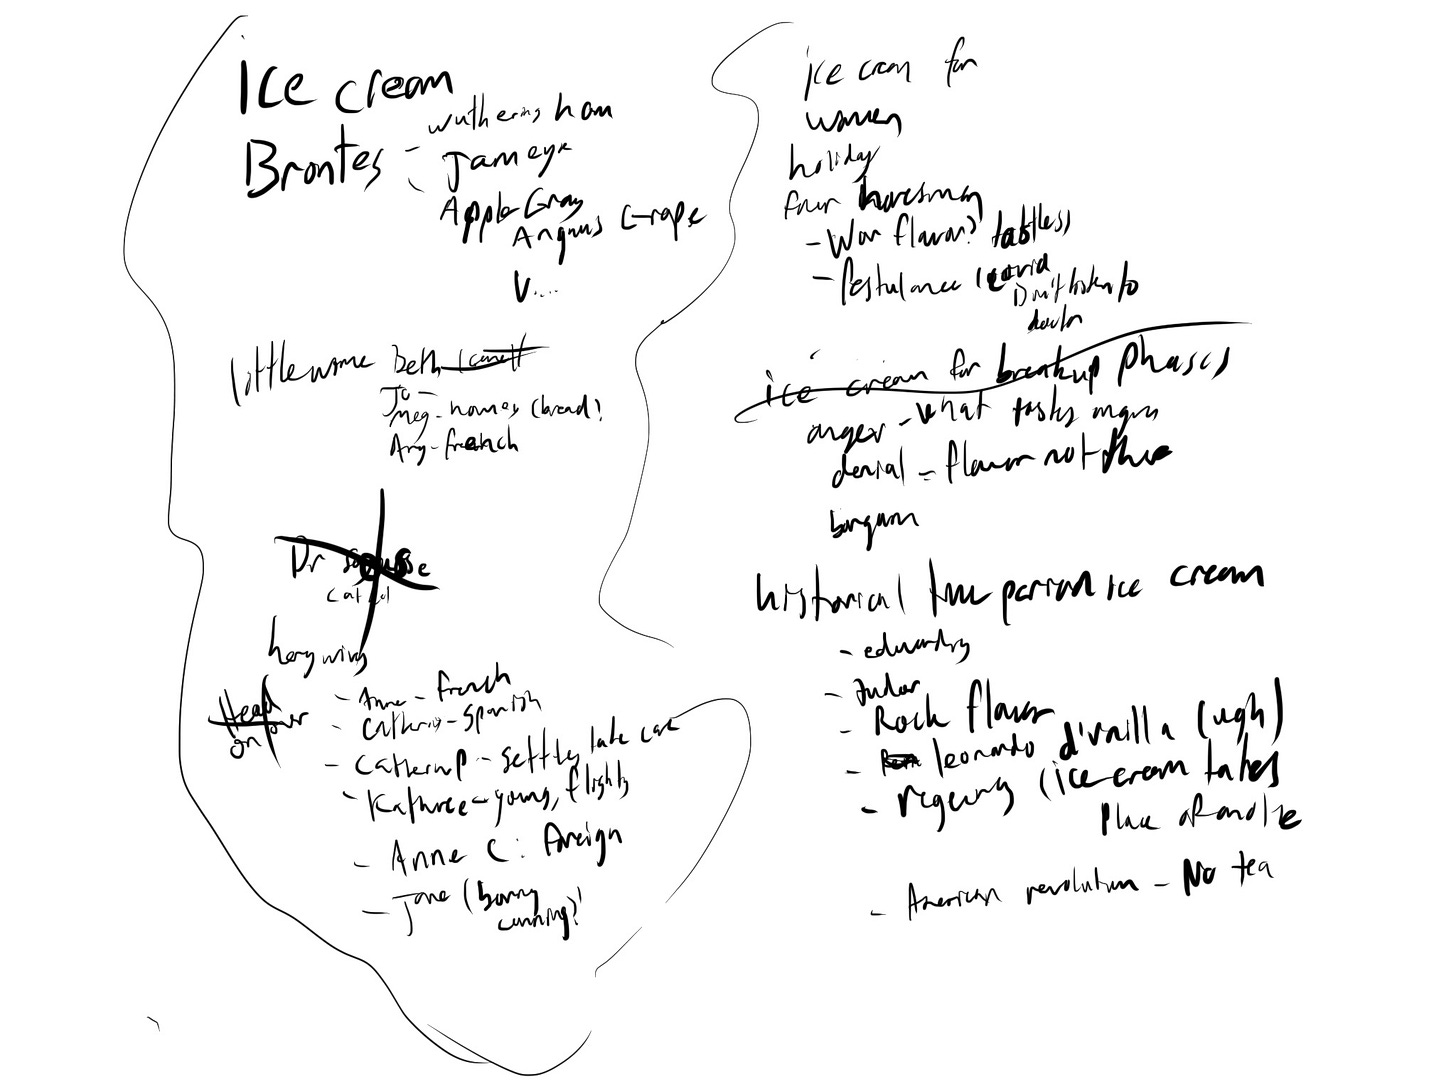 ice cream
Brontes - wuthering ham
Jam eye
Apple Gray
Angus Grape
V....
little wome Beth
Jo -
Meg - homes (bread?
Amy - french
Dr
cat
Head
on
- Anne - french
- Catherine - Spanish
- Catherine P - settles, take care
- Kathree - young, flighty
- Anne C: Foreign
- Jane (boring
cunning?)
ice cream for
women
holiday
four horesmen
- War flavor? tastless
- Pestulance (covid
Don't listen to
doctor
ice cream for breakup phases
anger - what tasty angry
denial - flavor not there
bargain
historical time period ice cream
- edwardry
- Tudor
- Rock flavor
- leonardo d'vnilla (ugh)
- regency (ice cream takes
place of
- American revolution - No tea